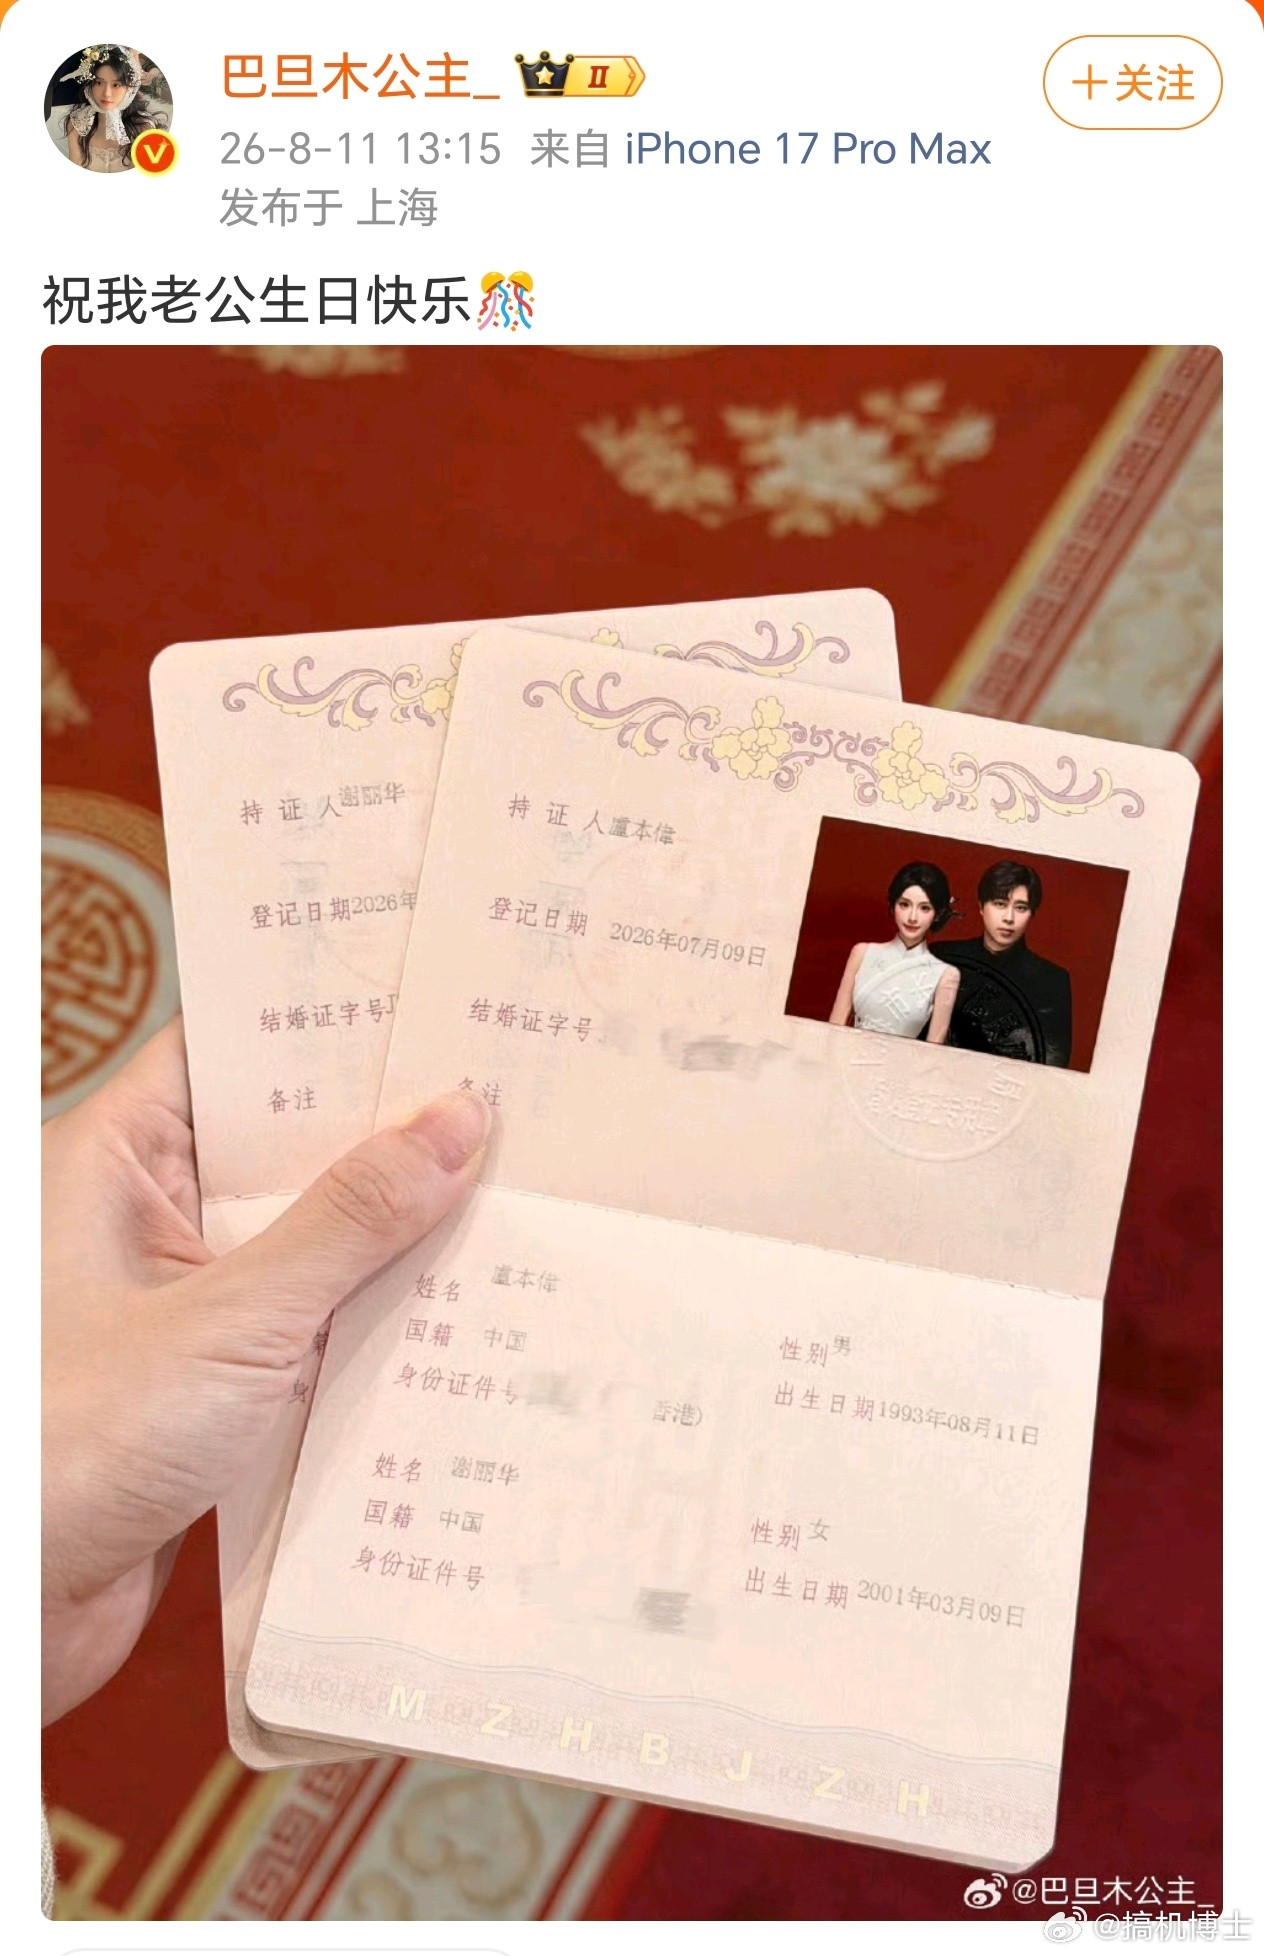 巴旦木公主_
II
+关注
26-8-11 13:15 来自 iPhone 17 Pro Max
发布于 上海
祝我老公生日快乐
持证人 谢丽华
登记日期 2026年
结婚证字号 J
备注
持证人 盧本偉
登记日期 2026年07月09日
结婚证字号 J
备注
姓名 盧本偉
国籍 中国
性别 男
身份证件号
香港)
出生日期 1993年08月11日
姓名 谢丽华
国籍 中国
性别 女
身份证件号
出生日期 2001年03月09日
籍
身
M Z H B J Z H
@巴旦木公主_
@搞机博士